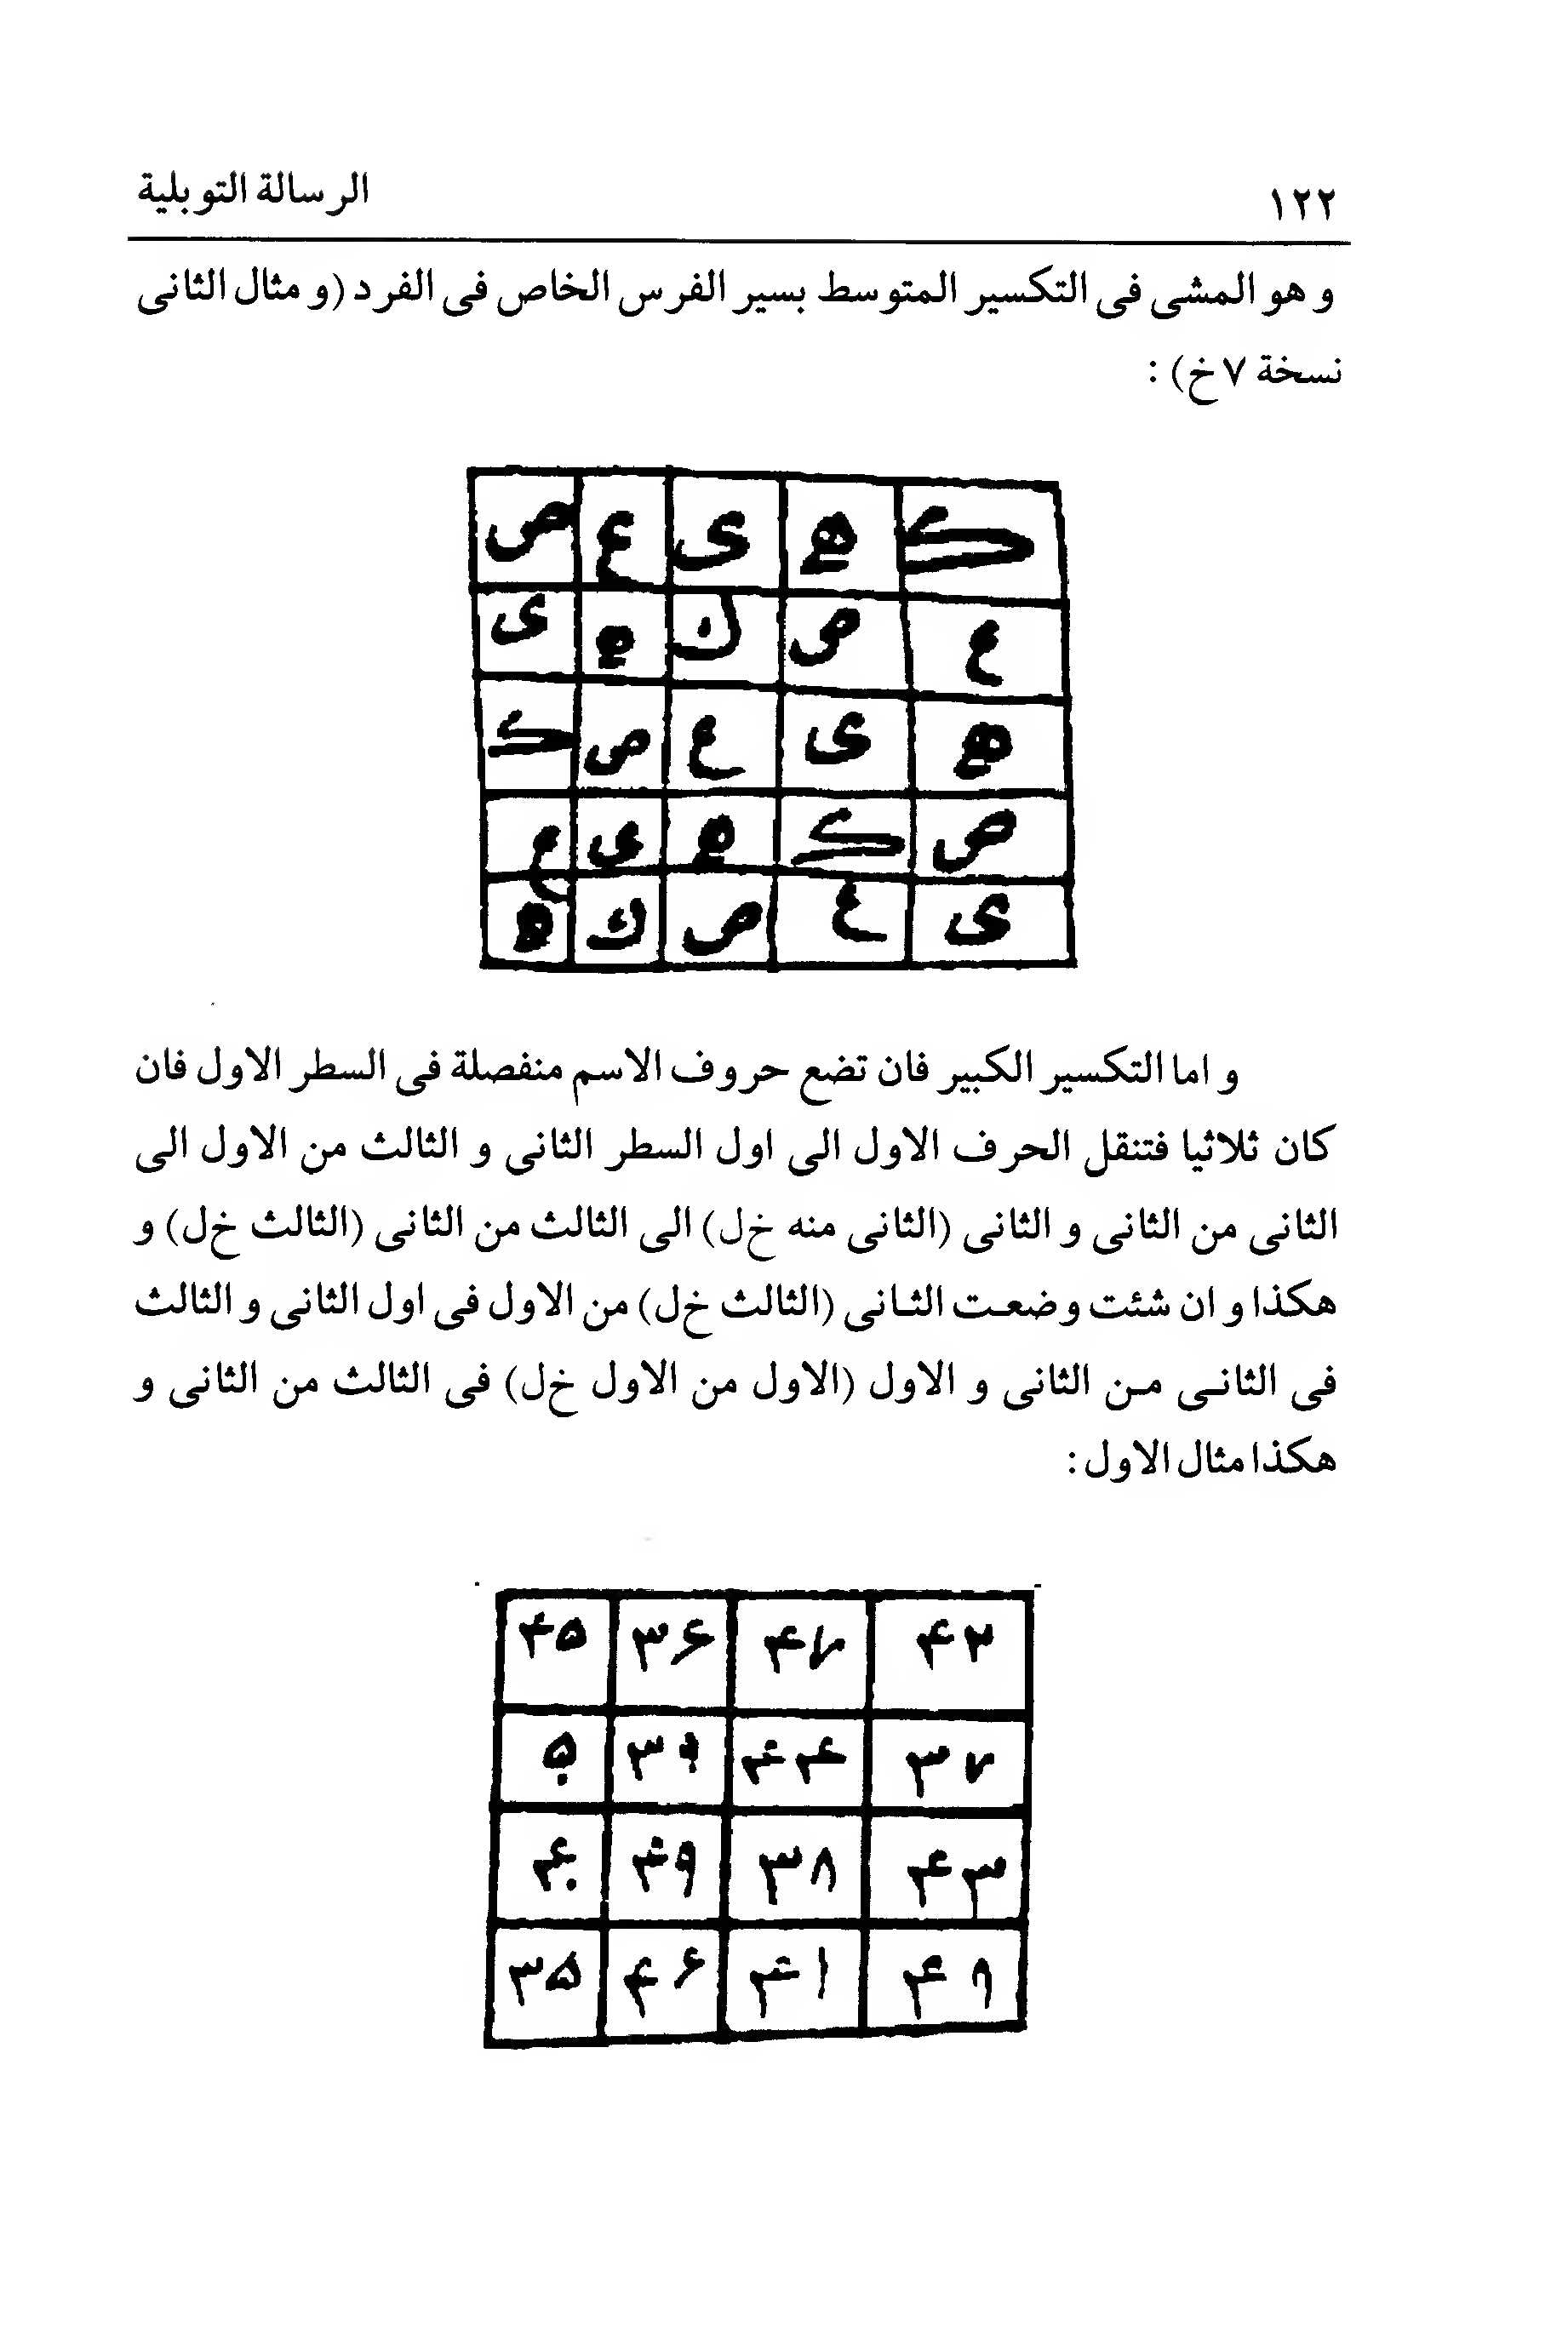 ١٢٢ الرسالة التوبلية
و هو المشى فى التكسير المتوسط بسير الفرس الخاص فى الفرد (و مثال الثانى
نسخة ٧خ) :
ك ه ى ع ص
ع ص ك ه ى
ه ى ع ص ك
ص ك ه ى ع
ى ع ص ك ه
و اما التكسير الكبير فان تضع حروف الاسم منفصلة فى السطر الاول فان
كان ثلاثيا فتنقل الحرف الاول الى اول السطر الثانى و الثالث من الاول الى
الثانى من الثانى و الثانى (الثانى منه خل) الى الثالث من الثانى (الثالث خل) و
هكذا و ان شئت وضعت الثانى (الثالث خل) من الاول فى اول الثانى و الثالث
فى الثانى من الثانى و الاول (الاول من الاول خل) فى الثالث من الثانى و
هكذا مثال الاول :
۴۲ ۴۷ ۳۶ ۴۵
۳۷ ۴۴ ۳۹ ۵۰
۴۳ ۳۸ ۴۹ ۴۰
۴۹ ۴۱ ۴۶ ۳۵